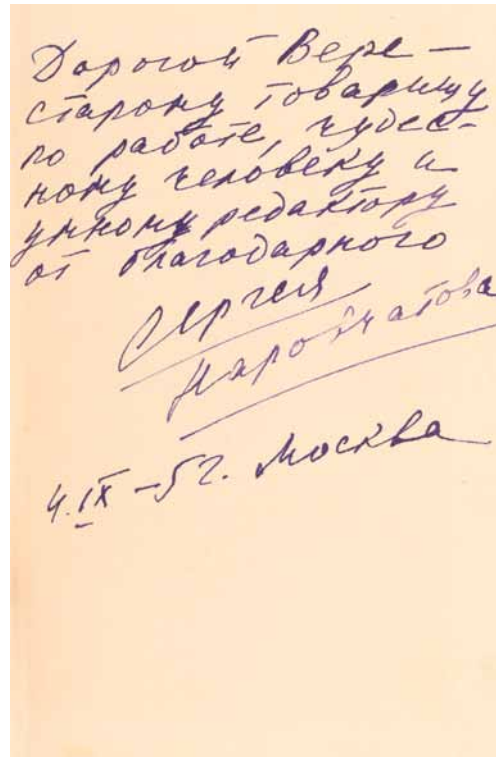 Дорогой Вере —
старому товарищу
по работе, чудес-
ному человеку и
умному редактору
от благодарного
Сергея
Наровчатова
4.IX-52. Москва